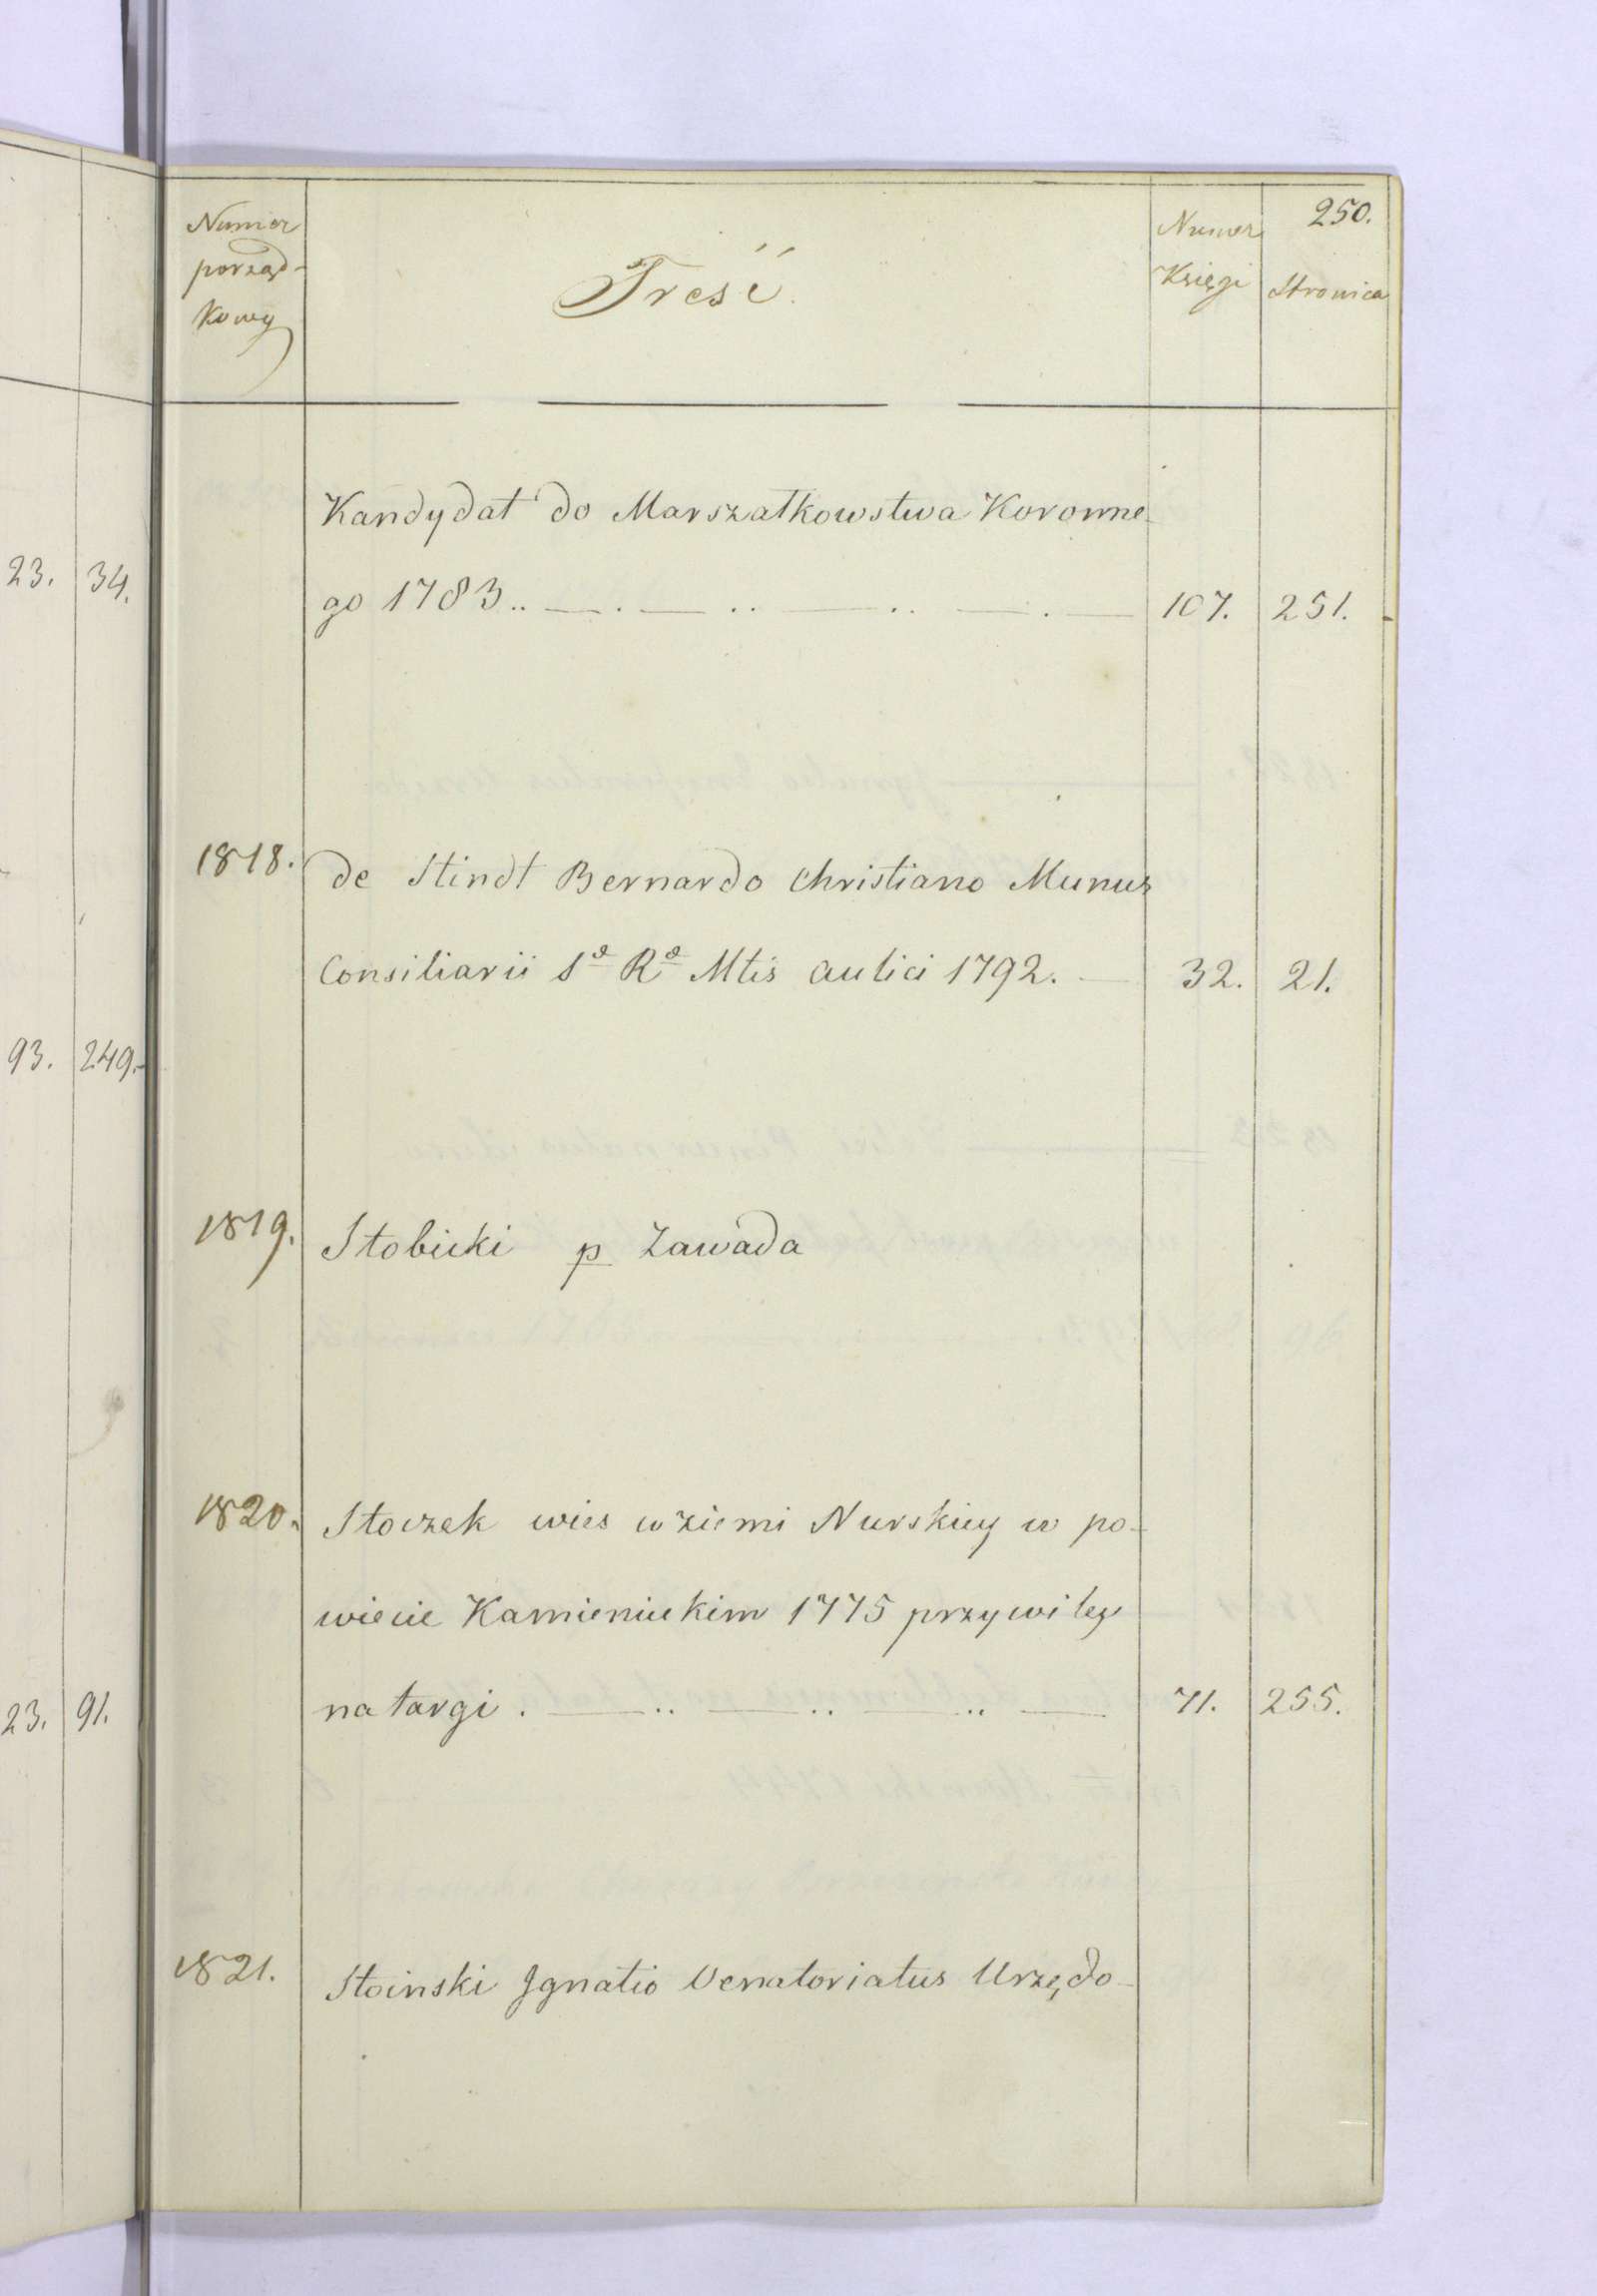 250.
Numer
porząd-
kowy
Treść.
Numer
Księgi
Stronica
Kandydat do Marszałkowstwa Koronne-
go 1783 .. — . — .. — .. — . — 107. 251.
1818. de Stindt Bernardo Christiano Munus
Consiliarii Sæ Ræ Mtis aulici 1792. — 32. 21.
1819. Stobicki p Zawada
1820. Stoczek wies w ziemi Nurskiey w po-
wiecie Kamienickim 1775 przywiley
na targi . — .. — .. — .. — 71. 255.
1821. Stoinski Ignatio Venatoriatus Urzędo-
23. 34.
93. 249.
23. 91.